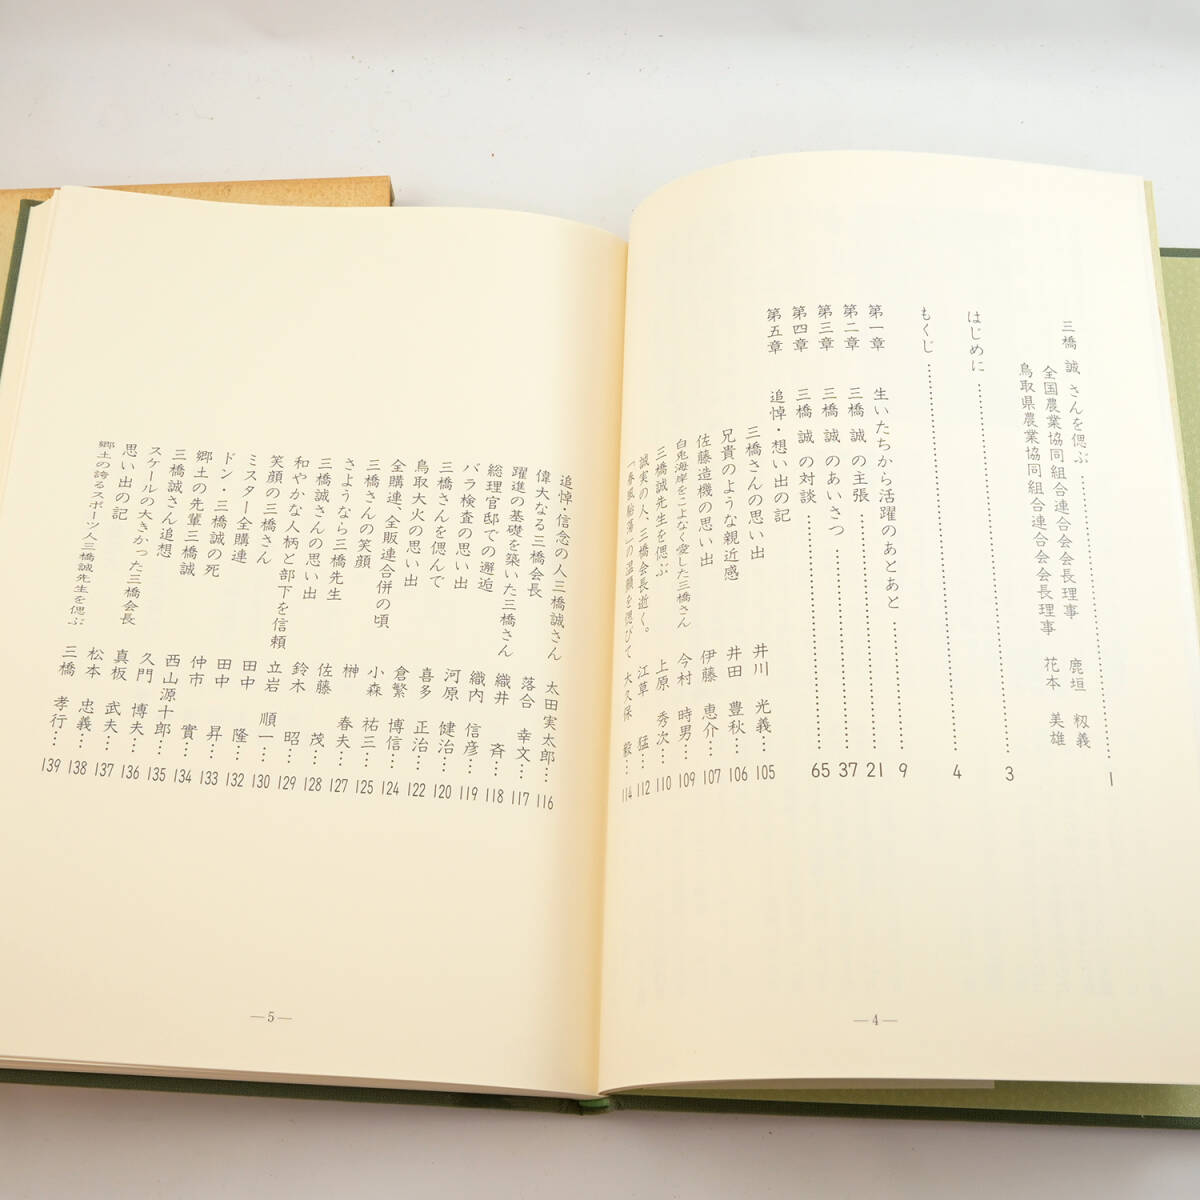 三橋 誠 さんを偲ぶ……………………………1
全国農業協同組合連合会会長理事 鹿垣 籾義
鳥取県農業協同組合連合会会長理事 花本 美雄
はじめに……………………………3
もくじ……………………………4
第一章 生いたちから活躍のあとあと……………9
第二章 三橋 誠 の主張……………………………21
第三章 三橋 誠 のあいさつ……………………………37
第四章 三橋 誠 の対談……………………………65
第五章 追悼・想い出の記
三橋さんの思い出 井川 光義…105
兄貴のような親近感 井田 豊秋…106
佐藤造機の思い出 伊藤 恵介…107
白兎海岸をこよなく愛した三橋さん 今村 時男…109
三橋誠先生を偲ぶ 上原 秀次…110
誠実の人、三橋会長逝く。 江草 猛…112
「春風駘蕩」の温顔を偲びて 大久保 毅…114
—4—
追悼・信念の人三橋誠さん 太田実太郎…116
偉大なる三橋会長 落合 幸文…117
躍進の基礎を築いた三橋さん 織井 斉…118
総理官邸での邂逅 織内 信彦…119
バラ検査の思い出 河原 健治…120
三橋さんを偲んで 喜多 正治…122
鳥取大火の思い出 倉繁 博信…124
全購連、全販連合併の頃 小森 祐三…125
三橋さんの笑顔 榊 春夫…127
さようなら三橋先生 佐藤 茂…128
三橋誠さんの思い出 鈴木 昭…129
和やかな人柄と部下を信頼 立岩 順一…130
笑顔の三橋さん 田中 隆…132
ミスター全購連 田中 昇…133
ドン・三橋誠の死 仲市 實…134
郷土の先輩三橋誠 西山源十郎…135
三橋誠さん追想 久門 博夫…136
スケールの大きかった三橋会長 真板 武夫…137
思い出の記 松本 忠義…138
郷土の誇るスポーツ人三橋誠先生を偲ぶ 三橋 孝行…139
—5—